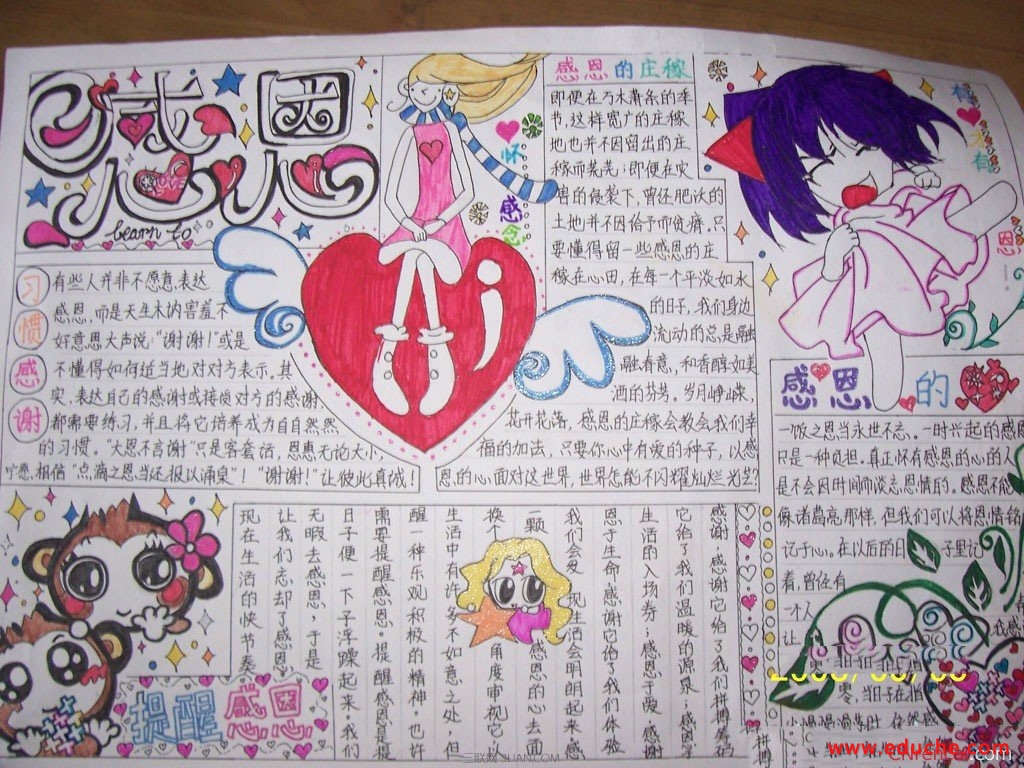 感恩
LOVE
learn to
心怀感恩
感恩的庄稼
即便在万木萧条的季
节,这样宽广的庄稼
地也并不因留出的庄
稼而荒芜;即便在灾
害的侵袭下,曾还肥沃的
土地并不因给予而贫瘠。只
要懂得留一些感恩的庄
稼在心田,在每一个平淡如水
的日子,我们身边
流动的总是融
融春意,和香醇如美
酒的芬芳。岁月峥嵘,
花开花落,感恩的庄稼会教会我们幸
福的加法,只要你心中有爱的种子,以感
恩的心面对这世界,世界怎能不闪耀灿烂光芒?
习惯感谢
有些人并非不愿意表达
感恩,而是天生木讷害羞不
好意思大声说:“谢谢!”或是
不懂得如何适当地对对方表示。其
实,表达自己的感谢或接领对方的感谢,
都需要练习,并且将它培养成为自自然然
的习惯。“大恩不言谢”只是客套话,恩惠无论大小,
宁愿相信“点滴之恩当还报以涌泉”!“谢谢!”让彼此真诚!
感恩的
一饭之恩当永世不忘。一时兴起的感恩
只是一种负担。真正怀有感恩的心的人
是不会因时间而淡忘恩情的。感恩不能
像诸葛亮那样,但我们可以将恩情铭
记于心。在以后的日子里记
着,曾经有
一个人
让
感谢,感谢它给了我们拼搏
它给了我们温暖的源泉
生活的入场券;感恩于爱,感谢
恩于生命,感谢它给了我们体验
我们会发现生活会明朗起来。感
一颗感恩的心去面
换个角度审视它,以
生活中有许多不如意之处,但
醒一种乐观积极的精神。也许
需要提醒感恩。提醒感恩是提
日子便一下子浮躁起来。我们
无暇去感恩,于是
让我们忘却了感恩
现在生活的快节奏
提醒感恩
三联网 3LIAN.COM
www.eduche.com